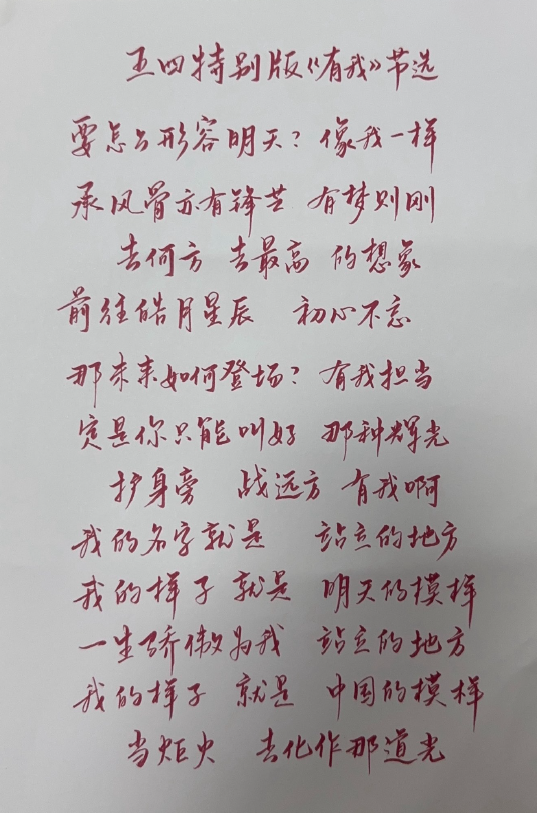 五四特别版《有我》节选
要怎么形容明天？像我一样
承风骨亦有锋芒 有梦则刚
去何方 去最高 的想象
前往皓月星辰 初心不忘
那未来如何登场？有我担当
定是你只能叫好 那种辉光
护身旁 战远方 有我啊
我的名字就是 站立的地方
我的样子 就是 明天的模样
一生骄傲为我 站立的地方
我的样子 就是 中国的模样
当炬火 去化作那道光